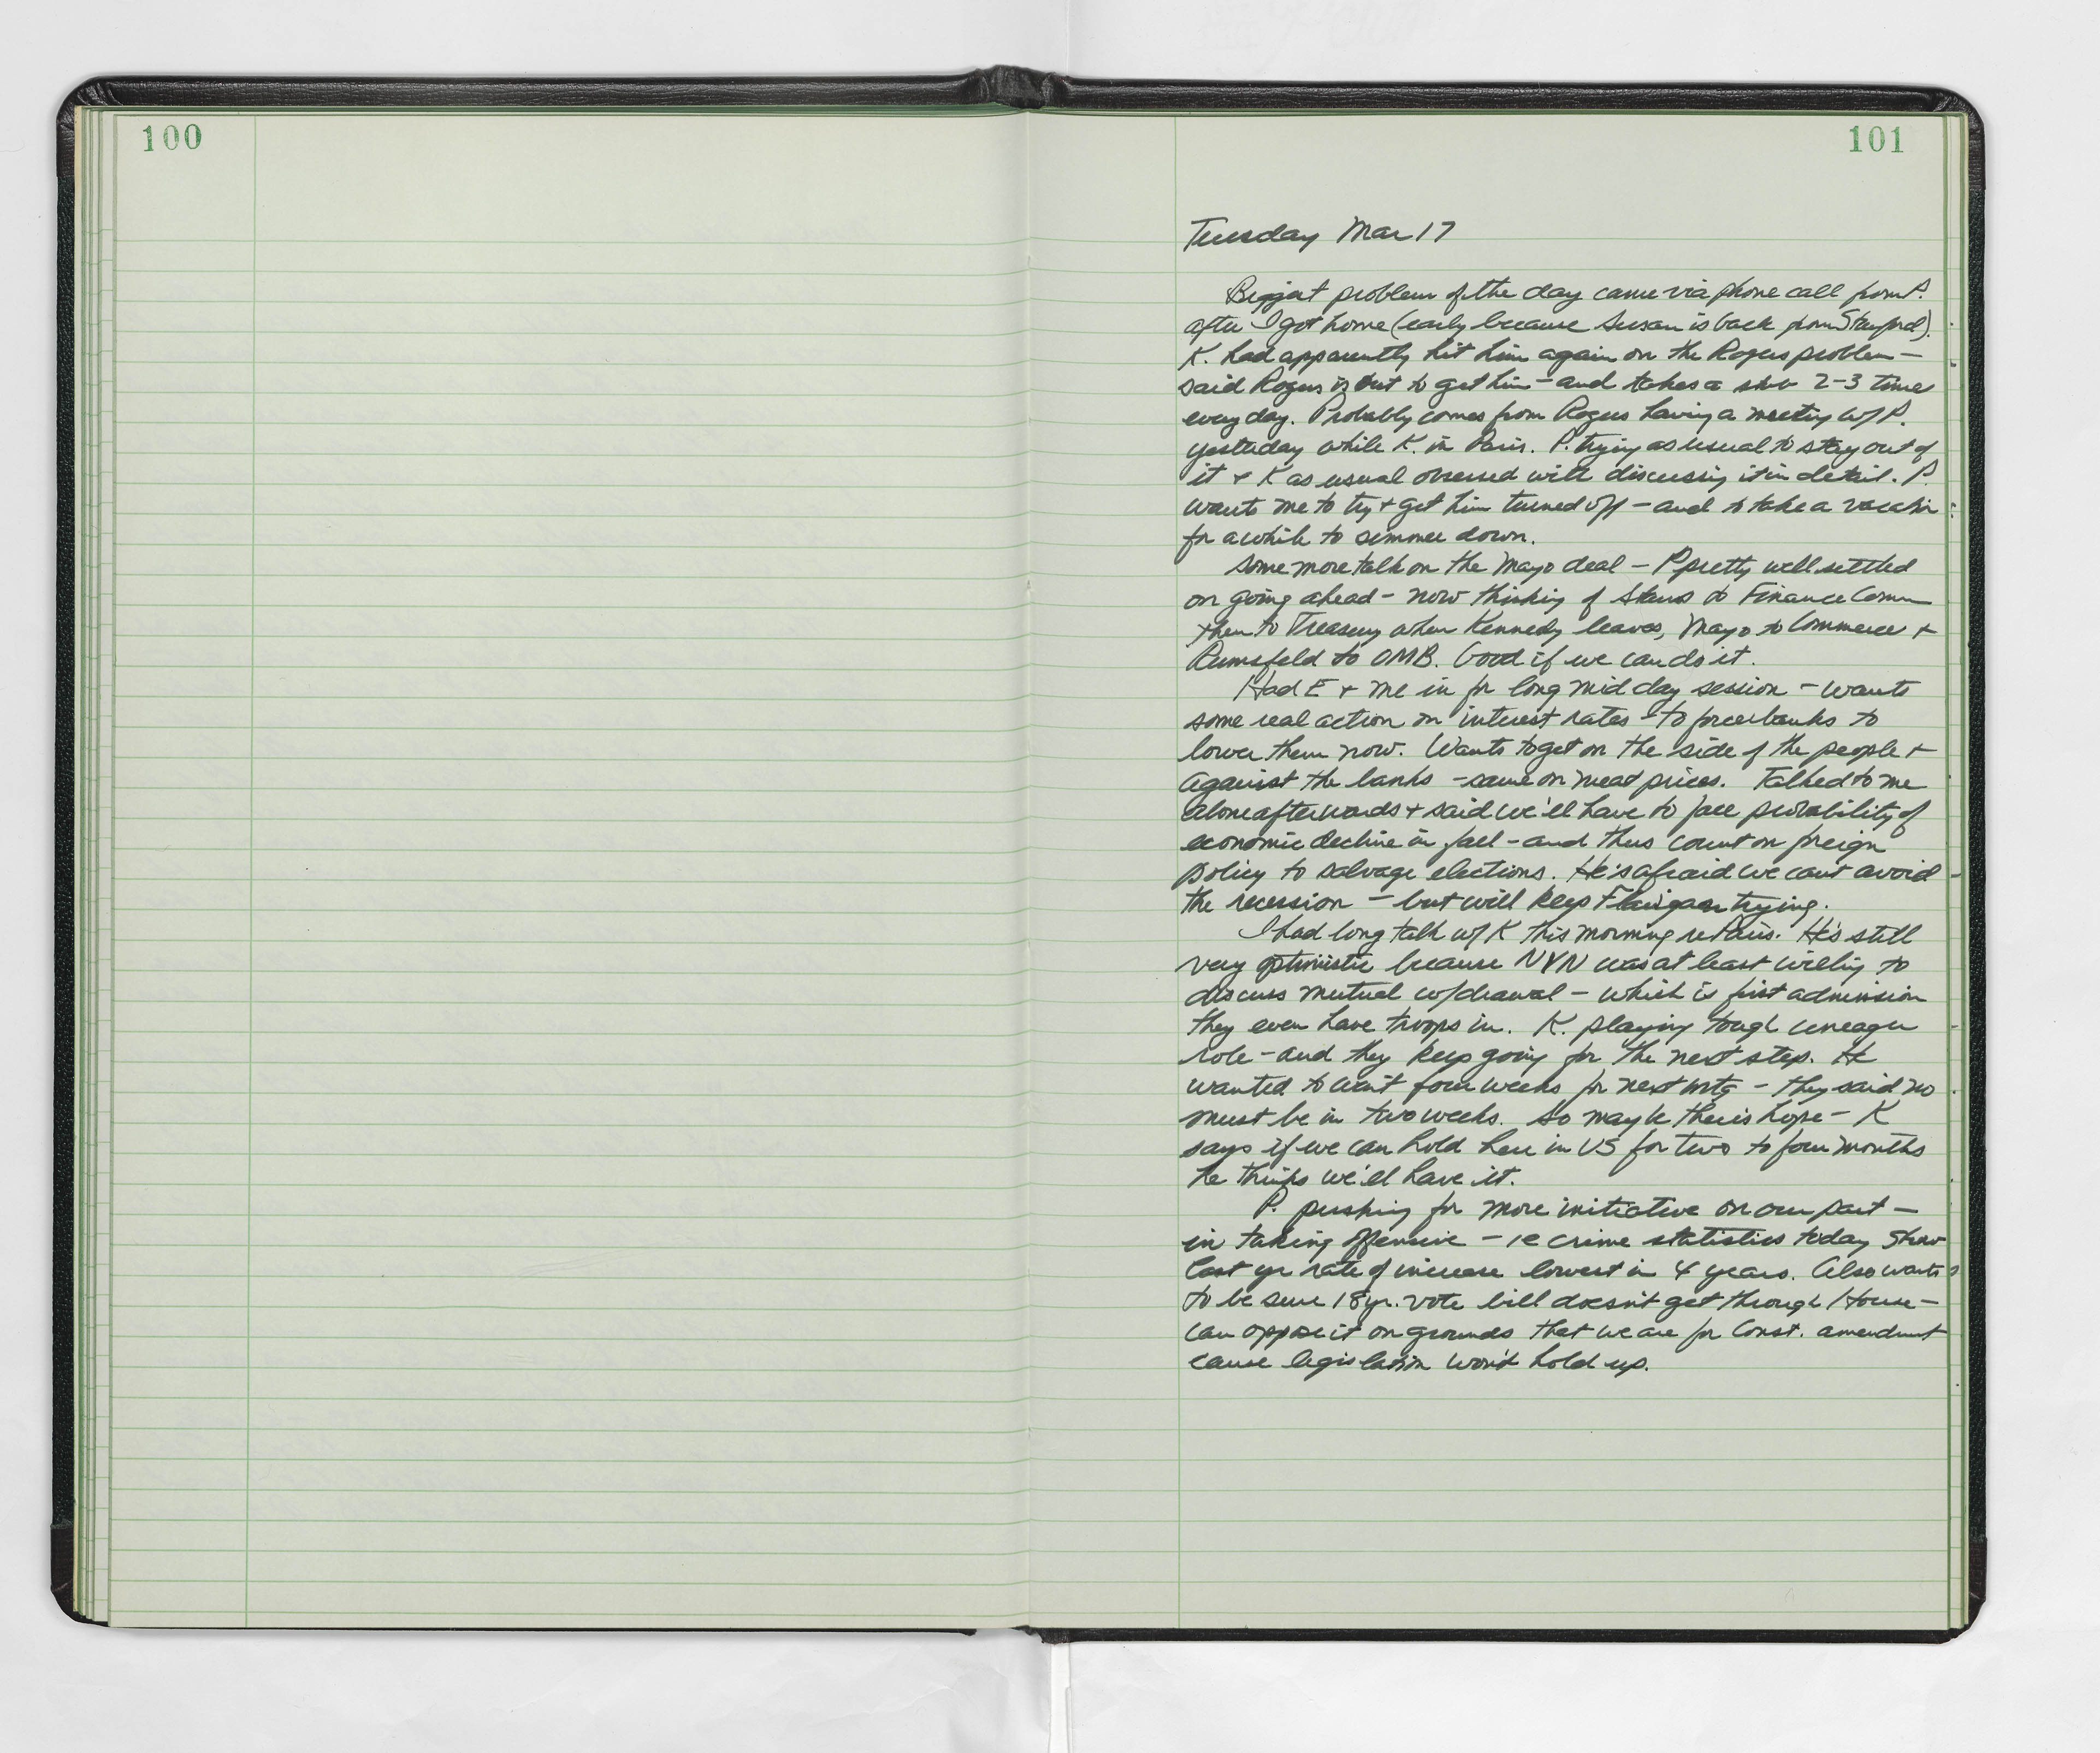 100
101
Tuesday Mar 17
Biggest problem of the day came via phone call from P.
after I got home (early because Susan is back from Stanford).
K. had apparently hit him again on the Rogers problem —
said Rogers is out to get him – and takes a shot 2–3 times
every day. Probably comes from Rogers having a meeting w/ P.
yesterday while K. in Paris. P. trying as usual to stay out of
it + K as usual obsessed with discussing it in detail. P.
wants me to try + get him turned off – and to take a vacation
for a while to simmer down.
Some more talk on the Mayo deal – P pretty well settled
on going ahead – now thinking of Stans to Finance Comm
then to Treasury when Kennedy leaves, Mayo to Commerce +
Rumsfeld to OMB. Good if we can do it.
Had E + me in for long mid day session – wants
some real action on interest rates – to force banks to
lower them now. Wants to get on the side of the people +
against the banks – same on meat prices. Talked to me
alone afterwards + said we'll have to face probability of
economic decline in fall – and thus count on foreign
policy to salvage elections. He's afraid we can't avoid
the recession – but will keep Flanigan trying.
I had long talk w/ K this morning re Paris. He's still
very optimistic because NVN was at least willing to
discuss mutual w/drawal – which is first admission
they even have troops in. K. playing tough uneager
role – and they keep going for the next step. He
wanted to wait four weeks for next mtg – they said no
must be in two weeks. So maybe there is hope – K
says if we can hold here in US for two to four months
he thinks we'll have it.
P. pushing for more initiative on our part —
in taking offensive – ie crime statistics today show
last yr rate of increase lowest in 4 years. Also wants
to be sure 18 yr. vote bill doesn't get through House –
can oppose it on grounds that we are for Const. amendment
cause legislation won't hold up.